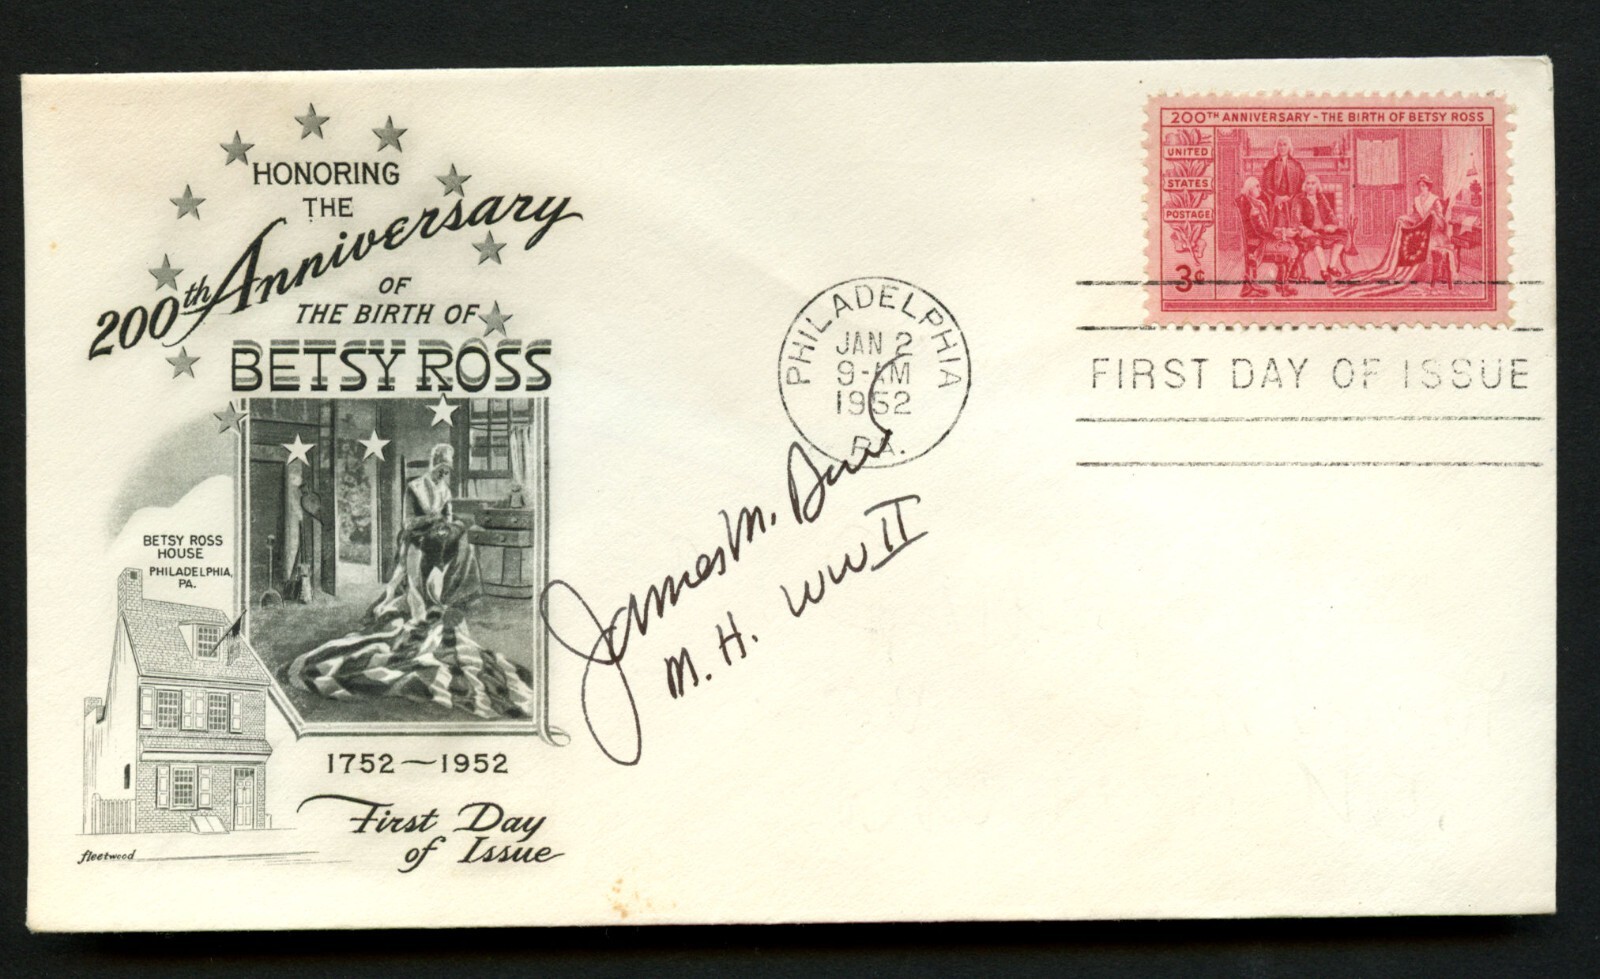 HONORING
THE
200th Anniversary
OF
THE BIRTH OF
BETSY ROSS
BETSY ROSS
HOUSE
PHILADELPHIA,
PA.
1752—1952
First Day
of Issue
fleetwood
James M. Burt
M. H. WW II
PHILADELPHIA
JAN 2
9-AM
1952
PA.
200TH ANNIVERSARY - THE BIRTH OF BETSY ROSS
UNITED
STATES
POSTAGE
3¢
FIRST DAY OF ISSUE